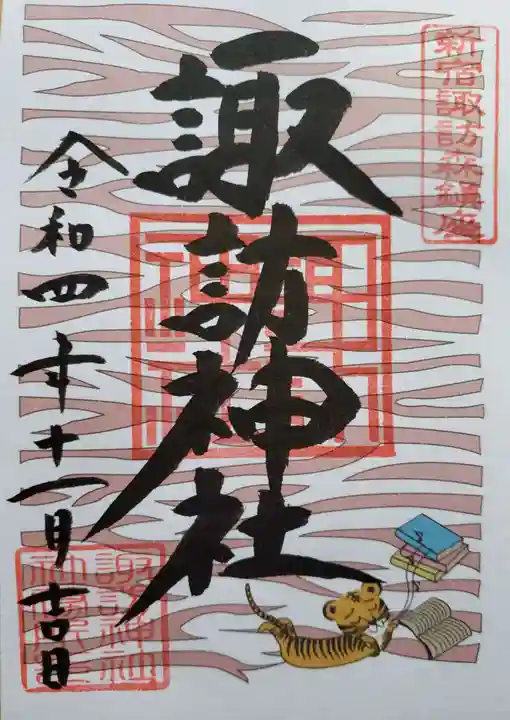 新宿諏訪森鎮座
諏訪神社
令和四年十一月吉日